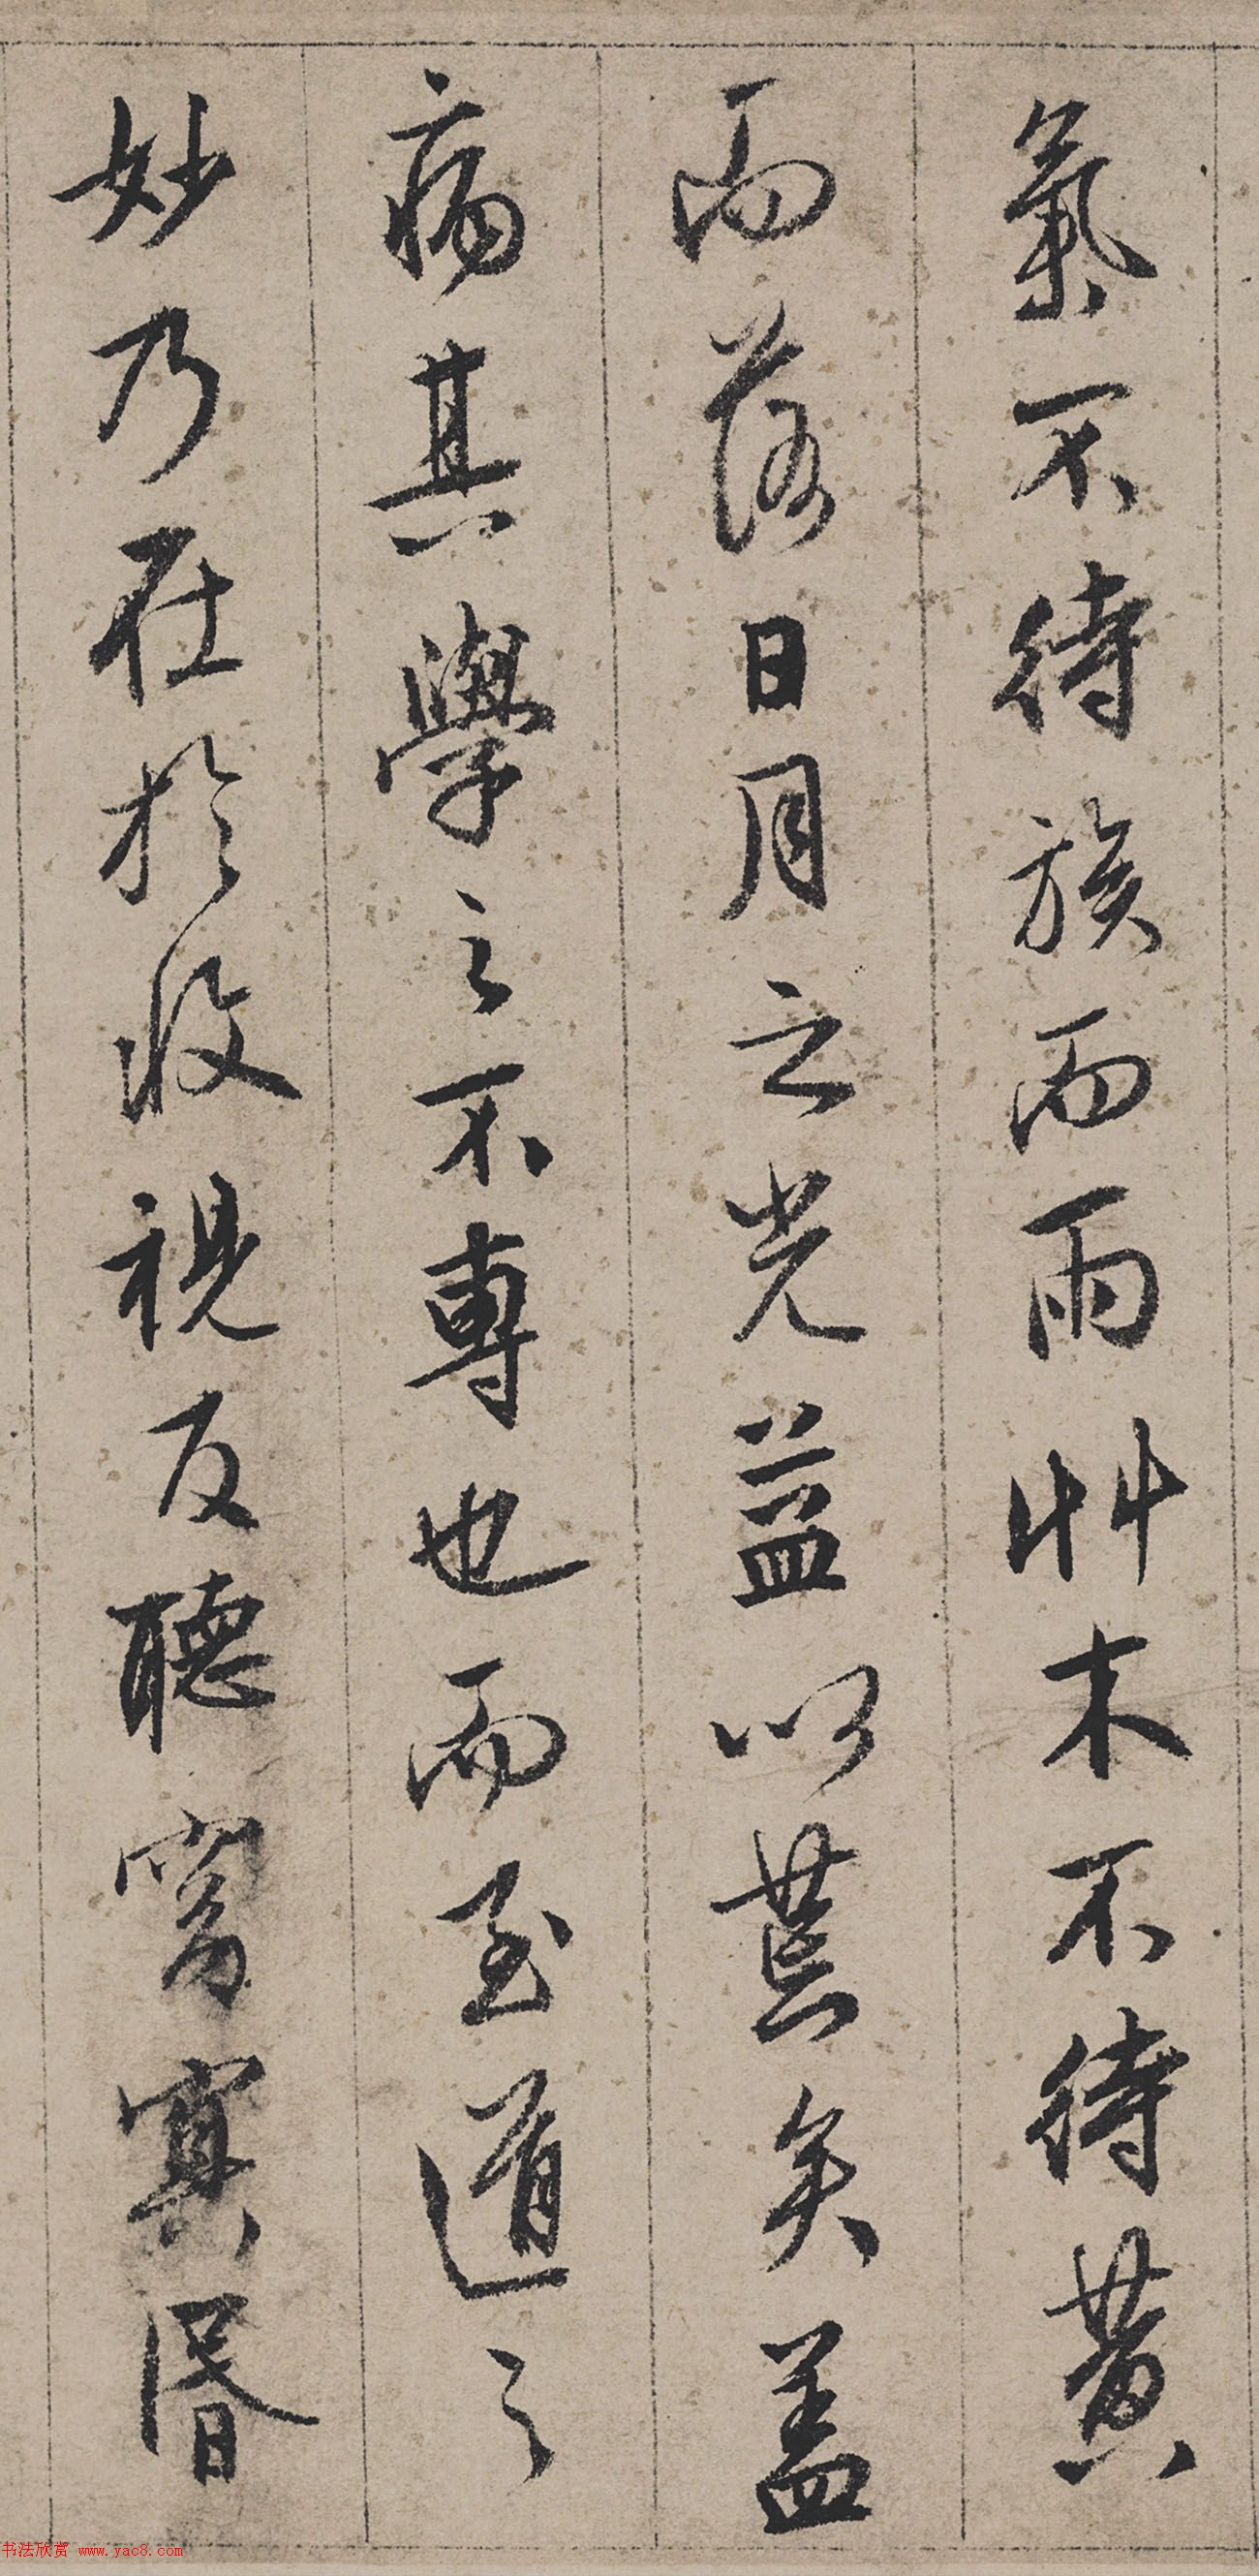 氣不待族而雨艸木不待黃
而落日月之光益以荒矣蓋
病其學之不專也而至道之
妙乃在於收視反聽窅冥昬
书法欣赏 www.yac8.com